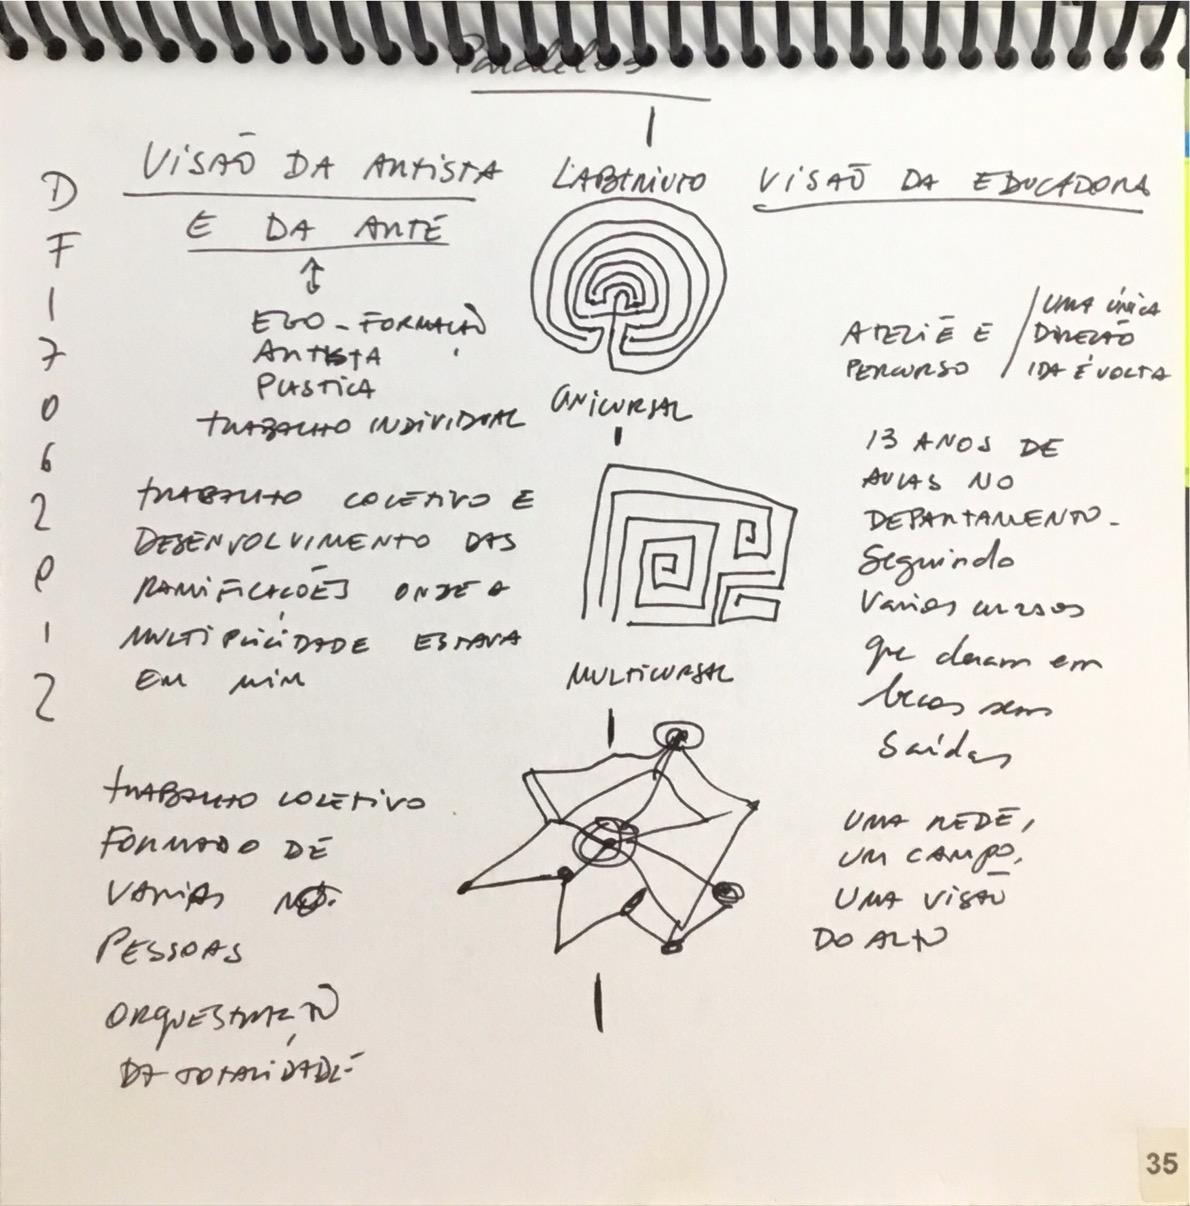 Paralelos
D
F
1
7
0
6
2
P
1
2
VISÃO DA ARTISTA
E DA ARTE
EGO - FORMAÇÃO
ARTISTA
PLASTICA
TRABALHO INDIVIDUAL
TRABALHO COLETIVO E
DESENVOLVIMENTO DAS
RAMIFICAÇÕES ONDE A
MULTIPLICIDADE ESTAVA
EM MIM
TRABALHO COLETIVO
FORMADO DE
VARIAS
PESSOAS
ORQUESTRAÇÃO
DA TOTALIDADE
LABIRINTO
UNICURSAL
MULTICURSAL
VISÃO DA EDUCADORA
ATELIÊ E
PERCURSO
UMA ÚNICA
DIREÇÃO
IDA E VOLTA
13 ANOS DE
AULAS NO
DEPARTAMENTO -
Seguindo
varios cursos
que deram em
becos sem
saídas
UMA REDE,
UM CAMPO,
UMA VISÃO
DO ALTO
35